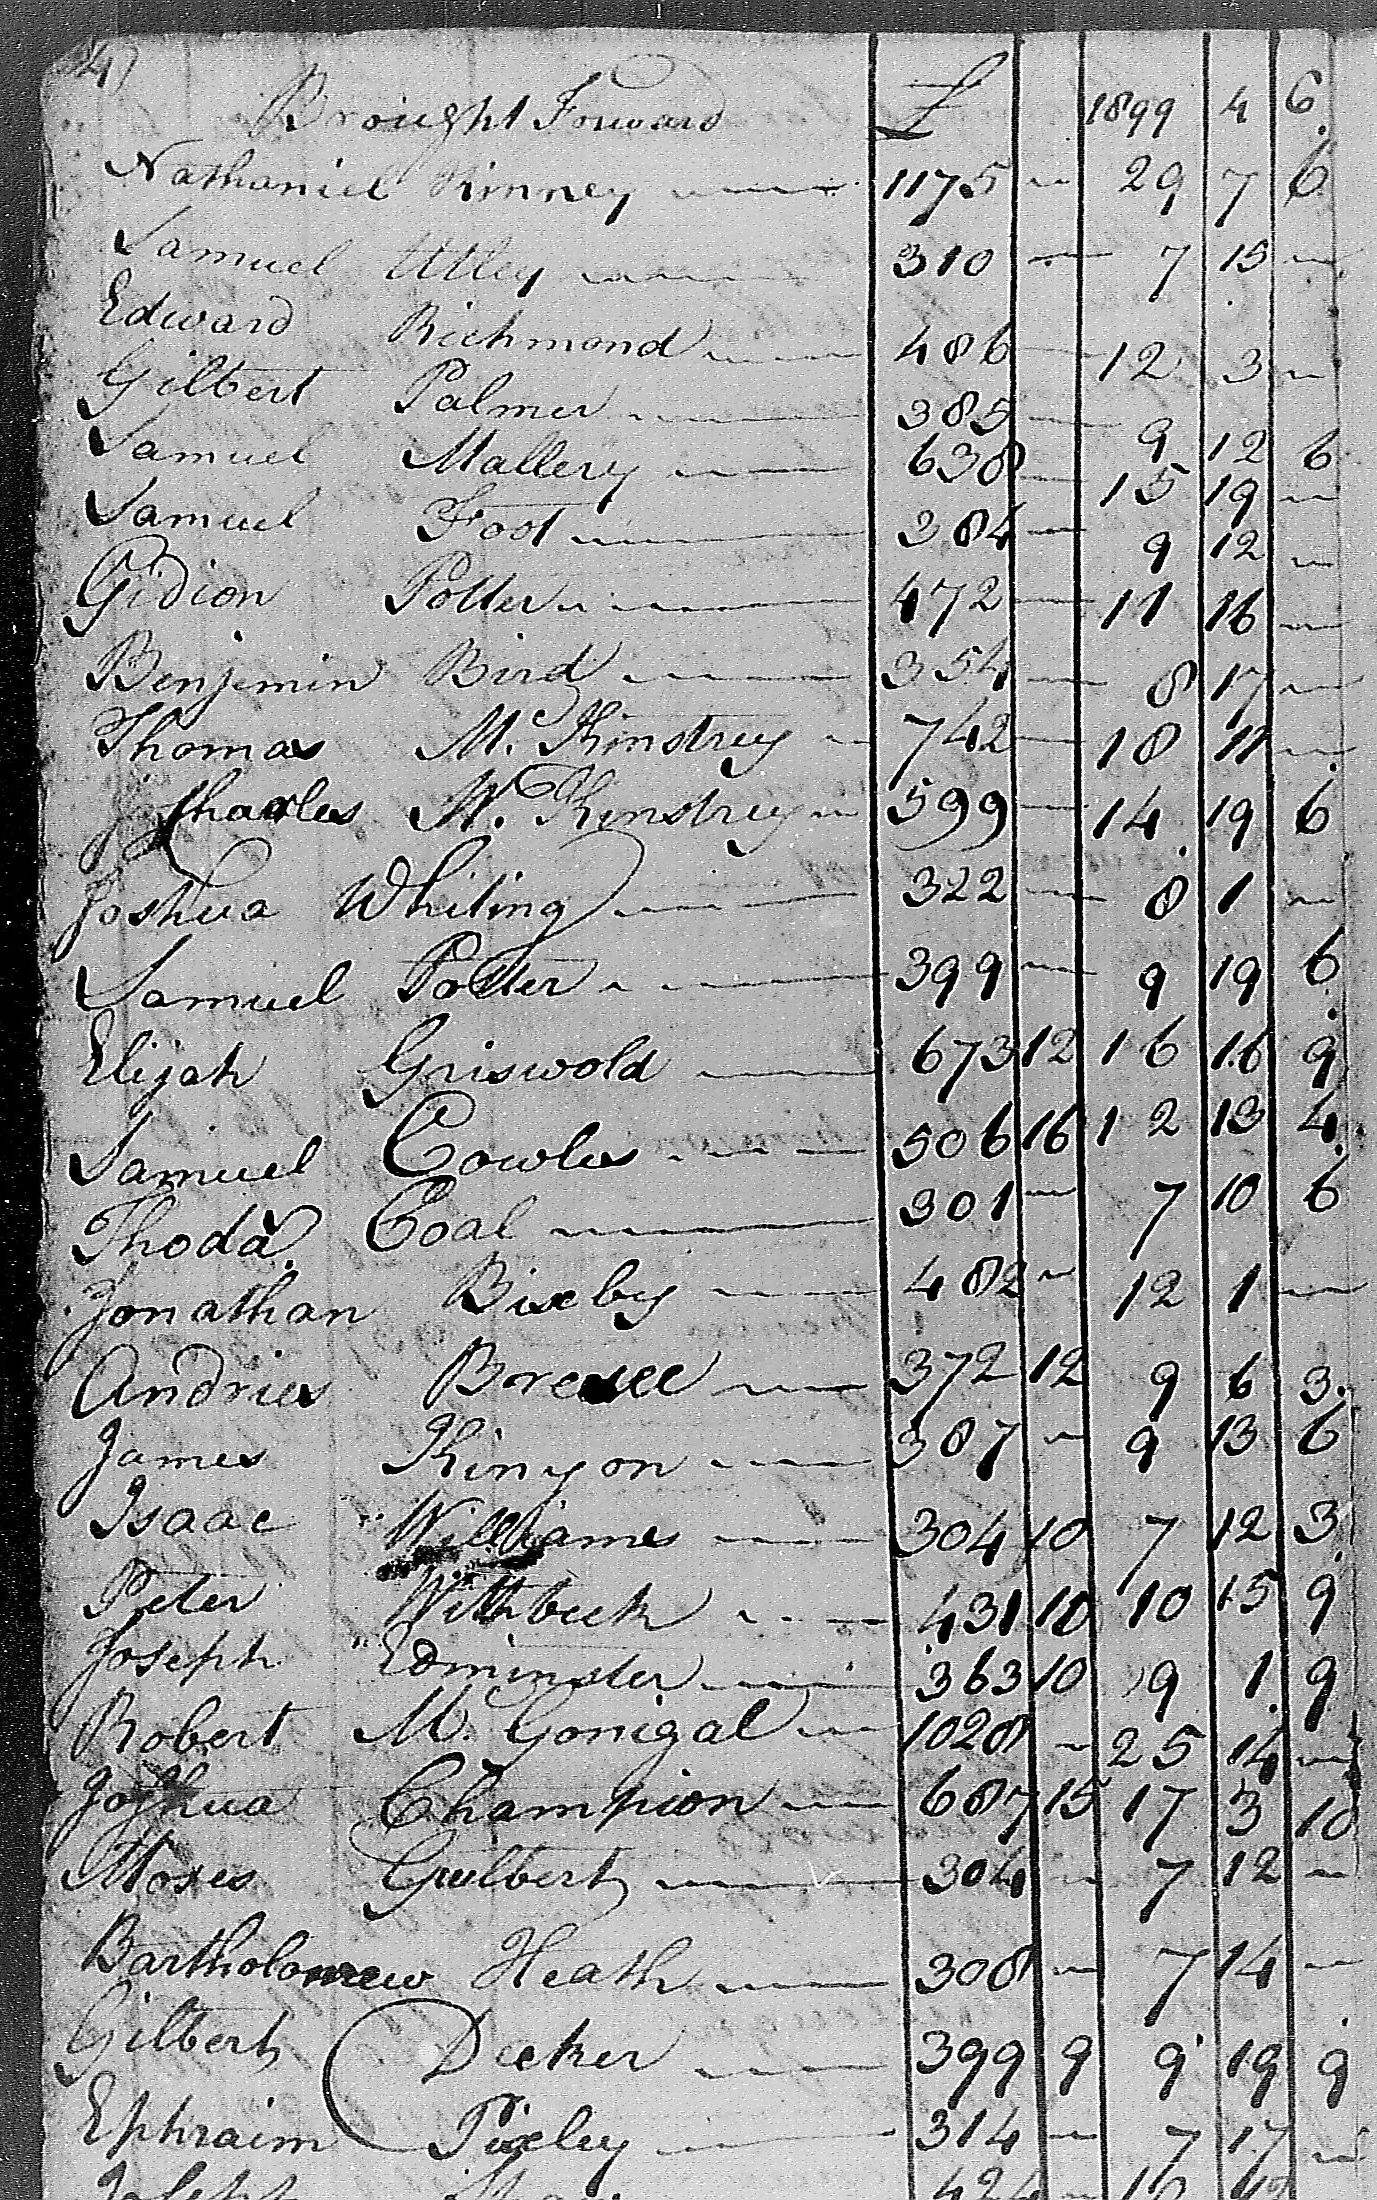 4)
Brought Forward £ 1899 4 6
Nathaniel Kinney 1175 — 29 7 6
Samuel Utley 310 — 7 15 —
Edward Richmond 486 — 12 3 —
Gilbert Palmer 385 — 9 12 6
Samuel Mallery 638 — 15 19 —
Samuel Foot 384 — 9 12 —
Gidion Potter 472 — 11 16 —
Benjimin Bird 354 — 8 17 —
Thomas Mc. Kinstrey 742 — 18 11 —
Charles Mc. Kinstrey 599 — 14 19 6
Joshua Whiting 322 — 8 1 —
Samuel Potter 399 — 9 19 6
Elijah Griswold 673 12 16 16 9
Samuel Cowles 506 16 12 13 4
Thoda. Coal 301 — 7 10 6
Jonathan Bixby 482 — 12 1 —
Andries Bresee 372 12 9 6 3
James Kinyon 387 — 9 13 6
Isaac Williams 304 10 7 12 3
Peter Wittbeck 431 10 10 15 9
Joseph Edminster 363 10 9 1 9
Robert M. Gonigal 1028 — 25 14 —
Joshua Champion 687 15 17 3 10
Moses Guilbert 304 — 7 12 —
Bartholomew Heath 308 — 7 14 —
Gilbert Decker 399 9 9 19 9
Ephraim Pixley 314 — 7 17 —
Joseph